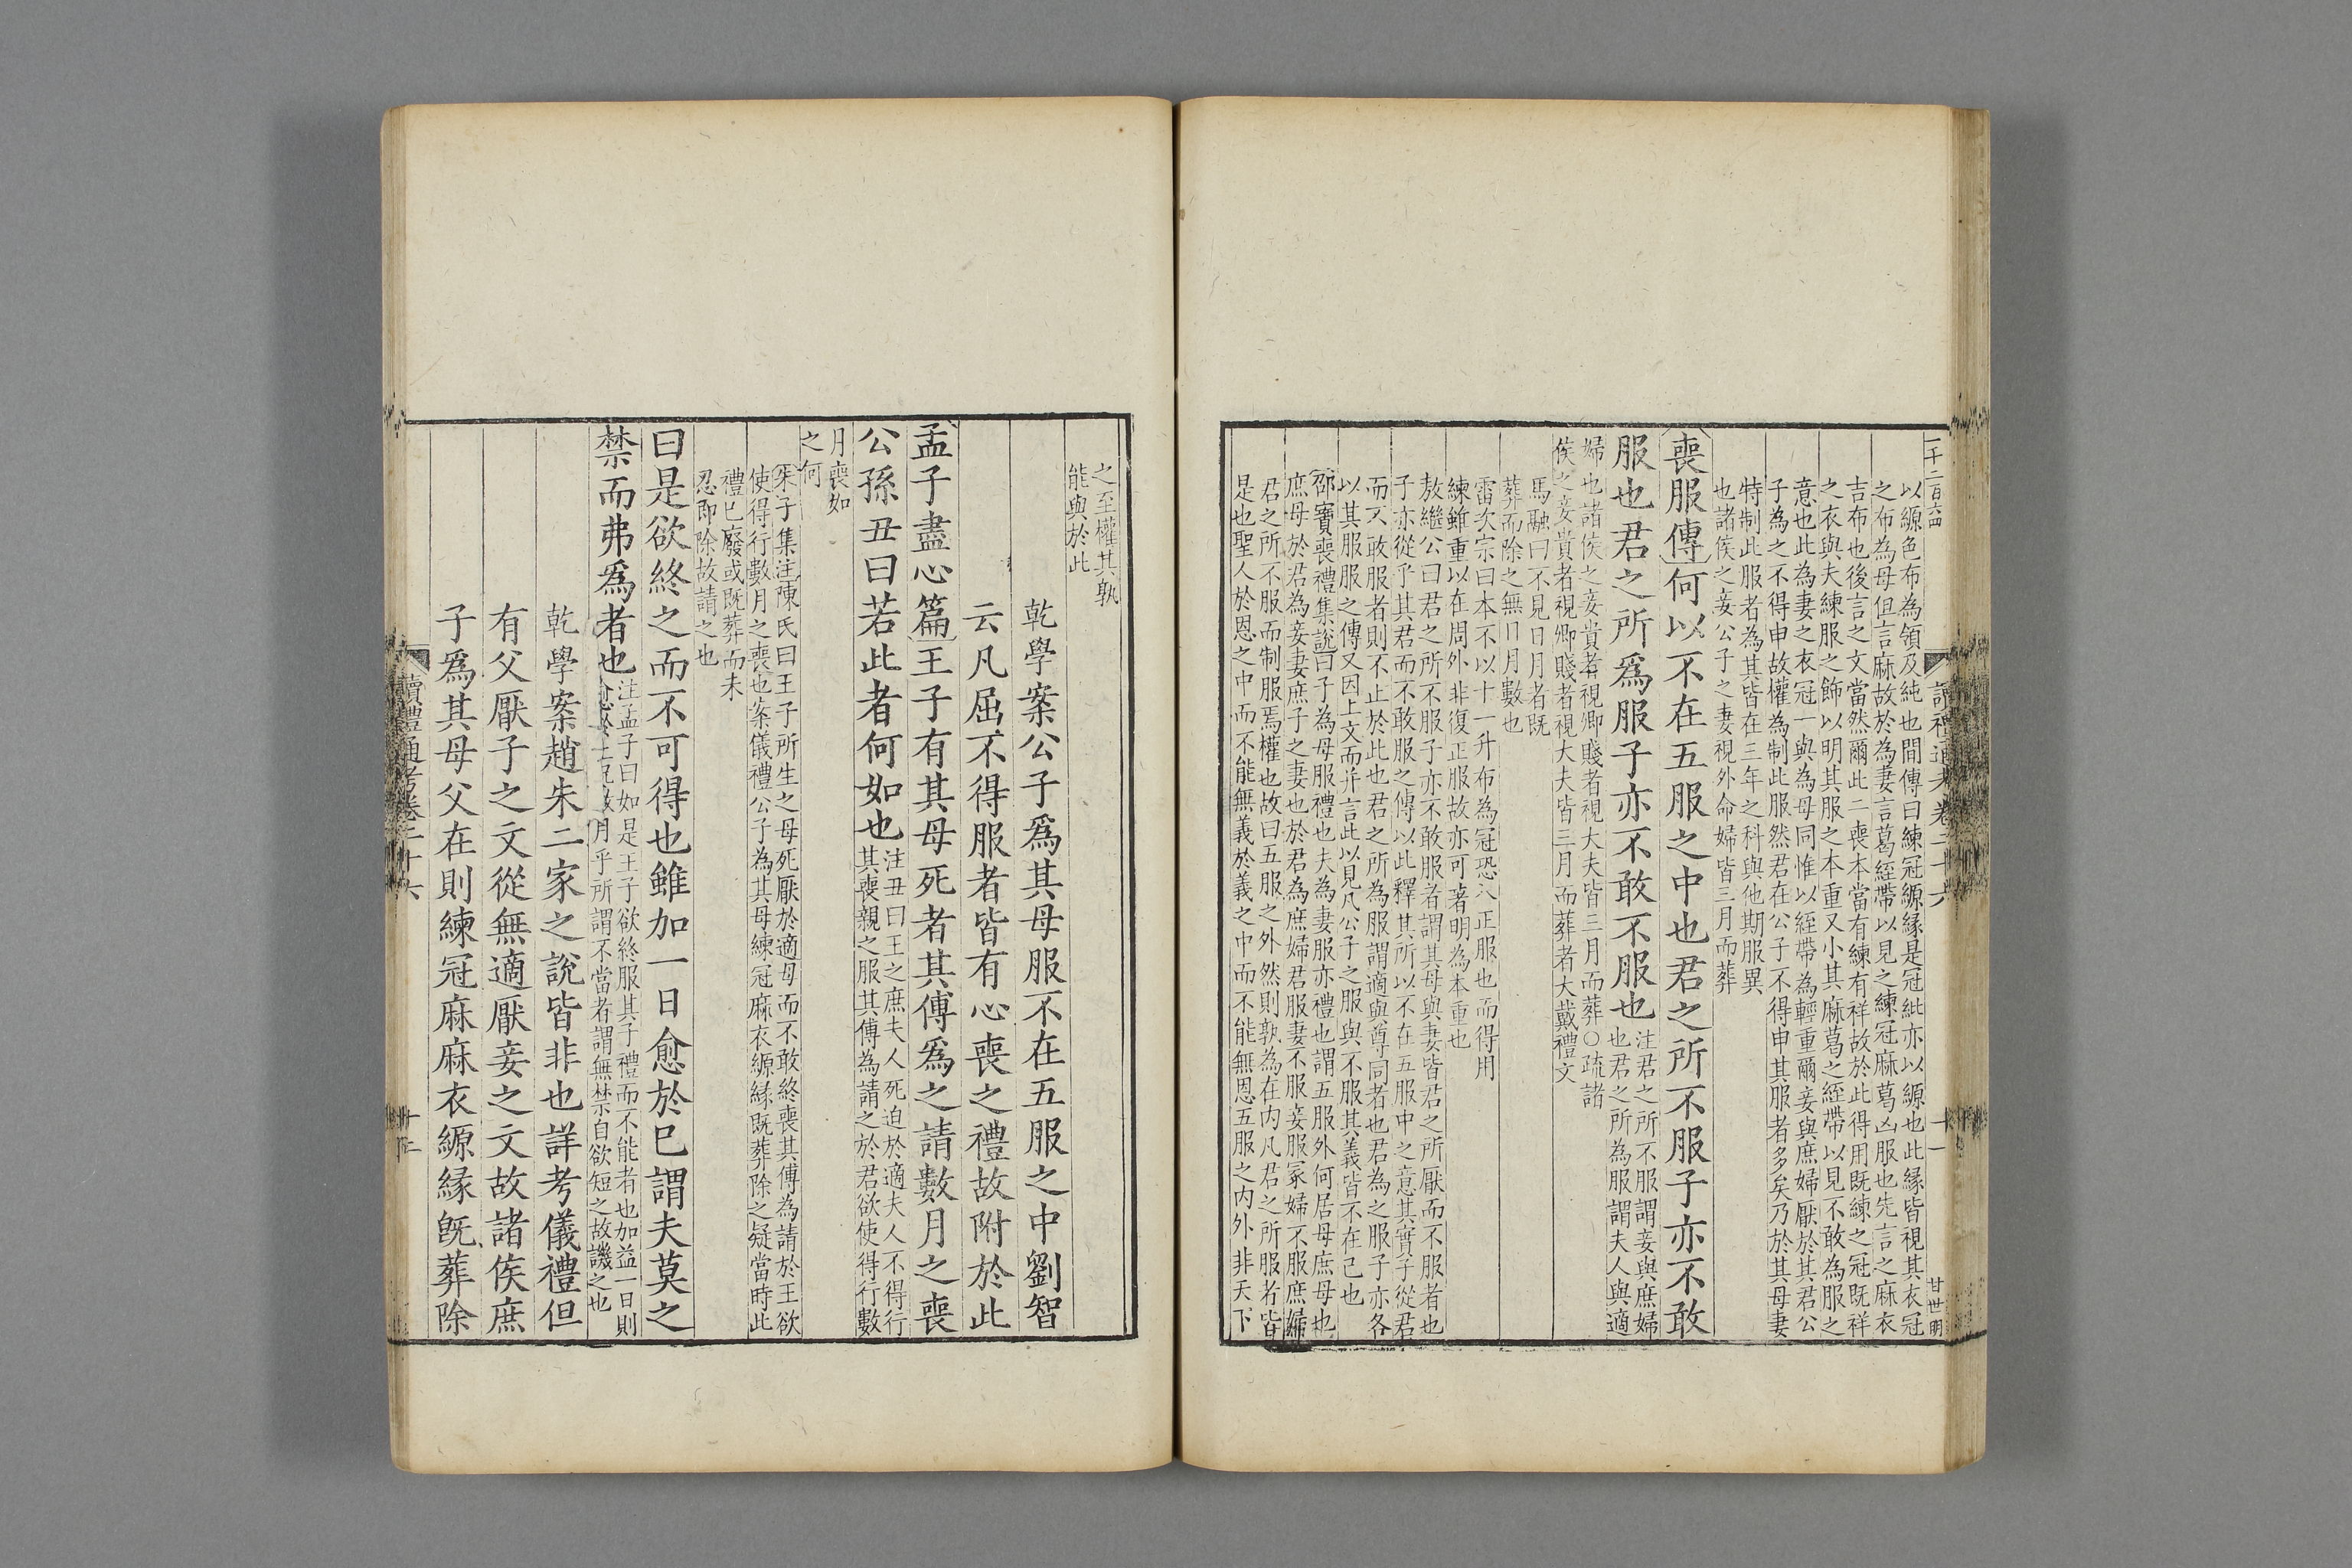 一千二百六四
讀禮通考卷二十六
十一
甘世明
以縓色布為領及純也間傳曰練冠縓縁是冠紕亦以縓也此縁皆視其衣冠
之布為母但言麻故於為妻言葛絰帶以見之練冠麻葛凶服也先言之麻衣
吉布也後言之文當然爾此二喪本當有練有祥故於此得用既練之冠既祥
之衣與夫練服之飾以明其服之本重又小其麻葛之絰帶以見不敢為服之
意也此為妻之衣冠一與為母同惟以絰帶為輕重爾妾與庶婦厭於其君公
子為之不得申故權為制此服然君在公子不得申其服者多矣乃於其母妻
特制此服者為其皆在三年之科與他期服異
也諸侯之妾公子之妻視外命婦皆三月而葬
喪服傳何以不在五服之中也君之所不服子亦不敢
服也君之所爲服子亦不敢不服也
注君之所不服謂妾與庶婦
也君之所為服謂夫人與適
婦也諸侯之妾貴者視卿賤者視大夫皆三月而葬○疏諸
侯之妾貴者視卿賤者視大夫皆三月而葬者大戴禮文
馬融曰不見日月者既
葬而除之無日月數也
雷次宗曰本不以十一升布為冠恐入正服也而得用
練雖重以在周外非復正服故亦可著明為本重也
敖繼公曰君之所不服子亦不敢服者謂其母與妻皆君之所厭而不服者也
子亦從乎其君而不敢服之傳以此釋其所以不在五服中之意其實子從君
而不敢服者則不止於此也君之所為服謂適與尊同者也君為之服子亦各
以其服服之傳又因上文而并言此以見凡公子之服與不服其義皆不在己也
邵寶喪禮集說曰子為母服禮也夫為妻服亦禮也謂五服外何居母庶母也
庶母於君為妾妻庶子之妻也於君為庶婦君服妻不服妾服冢婦不服庶婦
君之所不服而制服焉權也故曰五服之外然則孰為在内凡君之所服者皆
是也聖人於恩之中而不能無義於義之中而不能無恩五服之内外非天下
之至權其孰
能與於此
乾學案公子爲其母服不在五服之中劉智
云凡屈不得服者皆有心喪之禮故附於此
孟子盡心篇王子有其母死者其傅爲之請數月之喪
公孫丑曰若此者何如也
注丑曰王之庶夫人死迫於適夫人不得行
其喪親之服其傅為請之於君欲使得行數
月喪如
之何
朱子集注陳氏曰王子所生之母死厭於適母而不敢終喪其傅為請於王欲
使得行數月之喪也案儀禮公子為其母練冠麻衣縓縁既葬除之疑當時此
禮已廢或既葬而未
忍即除故請之也
曰是欲終之而不可得也雖加一日愈於已謂夫莫之
禁而弗爲者也
注孟子曰如是王子欲終服其子禮而不能者也加益一日則
月乎所謂不當者謂無禁自欲短之故譏之也
乾學案趙朱二家之說皆非也詳考儀禮但
有父厭子之文從無適厭妾之文故諸侯庶
子爲其母父在則練冠麻麻衣縓縁旣葬除
讀禮通考卷二十六
十二